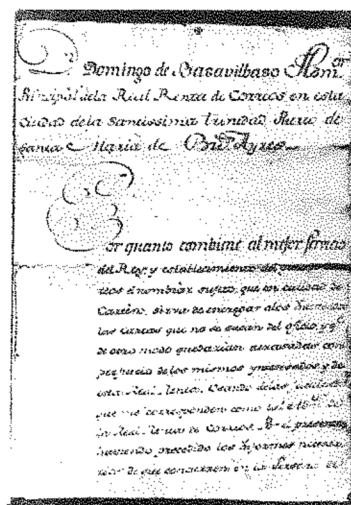 Domingo de Basavilbaso Adm.or
Prinzipal dela Real Renta de Correos en esta
Ciudad dela Santissima trinidad Puerto de
Santa Maria de Bu.s Ayres
Por quanto combiene al mejor servicio
del Rey, y establecimiento de
el nombrar sugeto, que con calidad de
Cartero, sirva de entregar alos
las Cartas que no se sacan del oficio, y q.e
de otro modo quedarian atrasadas con
perjuicio de los mismos ynteresados y de
esta Real Renta; Usando de las
que me corresponden como tal Adm.or de
la Real Renta de Correos. Por el presente
haviendo precedido los Informes
de que concurren en la Persona de